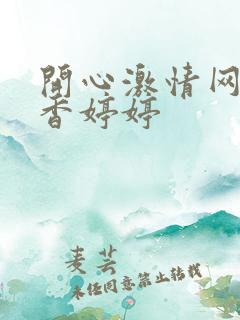 開心激情网
香婷婷
麦芸
未经同意禁止转载